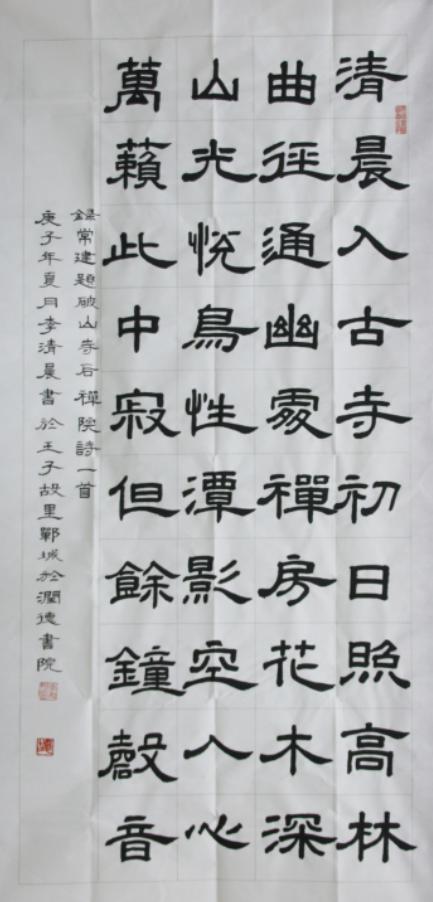 清晨入古寺初日照高林
曲徑通幽處禪房花木深
山光悅鳥性潭影空人心
萬籟此中寂但餘鐘磬音
錄常建題破山寺后禪院詩一首
庚子年夏月李清晨書於王子故里鄲城於潤德書院